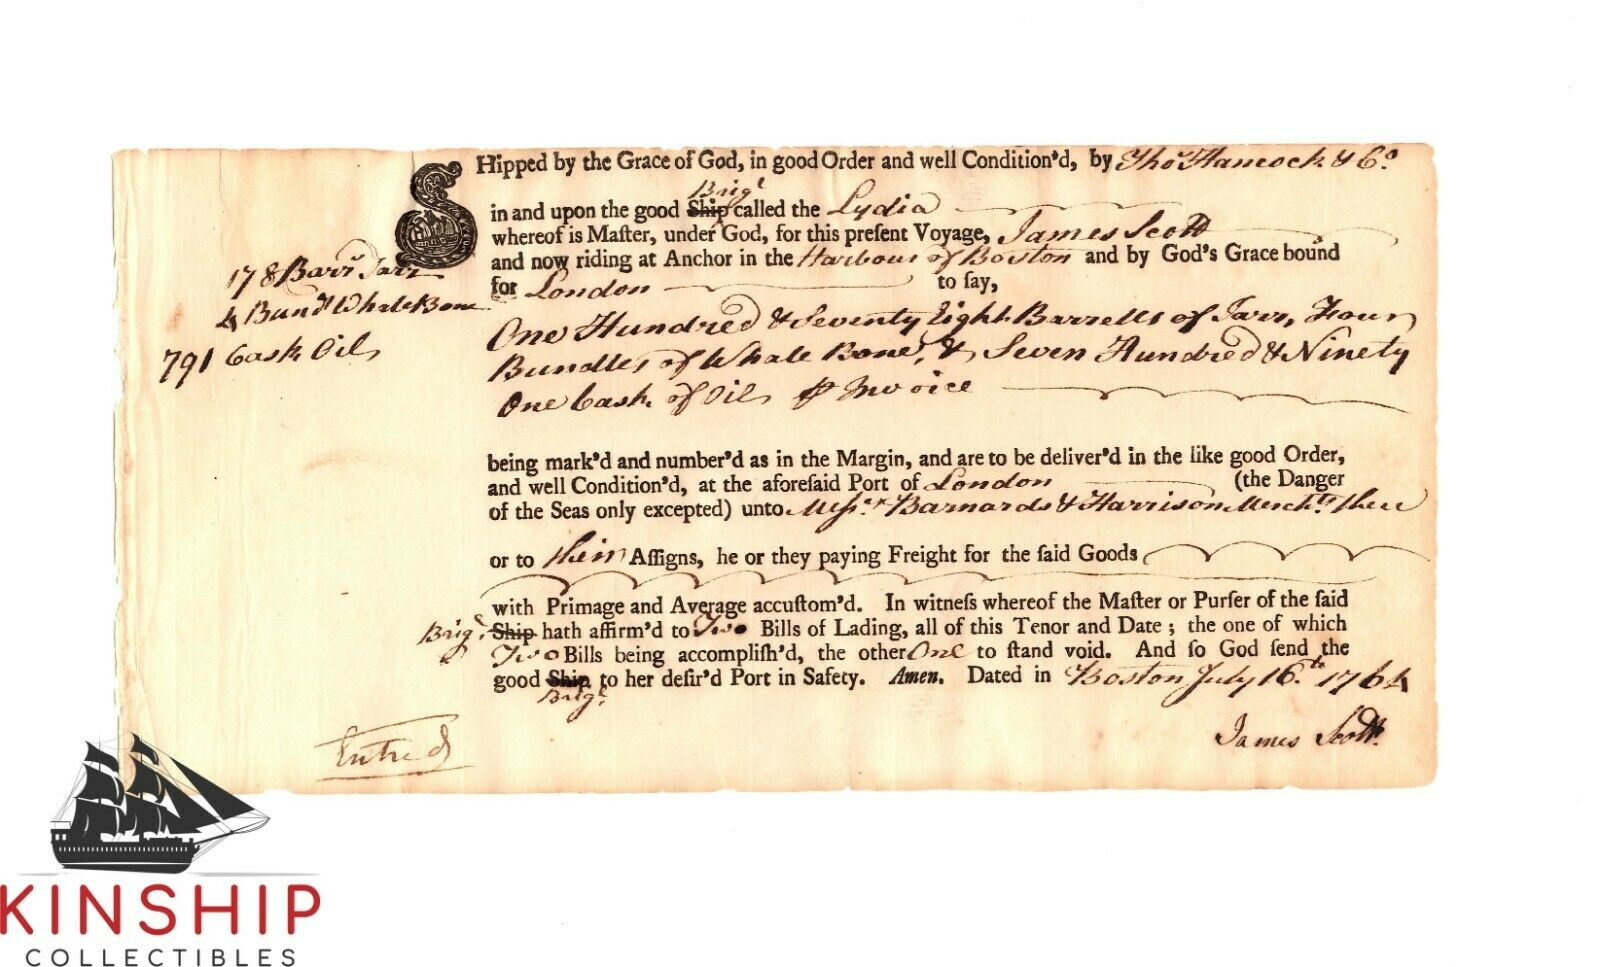 SHipped by the Grace of God, in good Order and well Condition'd, by Thos. Hancock & Co.
Brigt.
in and upon the good Ship called the Lydia
whereof is Maſter, under God, for this preſent Voyage, James Scott
and now riding at Anchor in the Harbour of Boston and by God's Grace bound
for London to ſay,
178 Barrs Tarr
4 Bunds Whale Bone
791 Cask Oil
One Hundred & Seventy Eight Barrells of Tarr, Four
Bundles of Whale Bone, & Seven Hundred & Ninety
One Cask of Oil ⅌ Invoice
being mark'd and number'd as in the Margin, and are to be deliver'd in the like good Order,
and well Condition'd, at the aforeſaid Port of London (the Danger
of the Seas only excepted) unto Messrs. Barnards & Harrison Merchts. there
or to their Aſſigns, he or they paying Freight for the ſaid Goods
with Primage and Average accuſtom'd. In witneſs whereof the Maſter or Purſer of the ſaid
Brigt. Ship hath affirm'd to Two Bills of Lading, all of this Tenor and Date; the one of which
Two Bills being accompliſh'd, the other One to ſtand void. And ſo God ſend the
good Ship to her deſir'd Port in Safety. Amen. Dated in Boston July 16th. 1764
Brigt.
James Scott.
Entred
KINSHIP
COLLECTIBLES